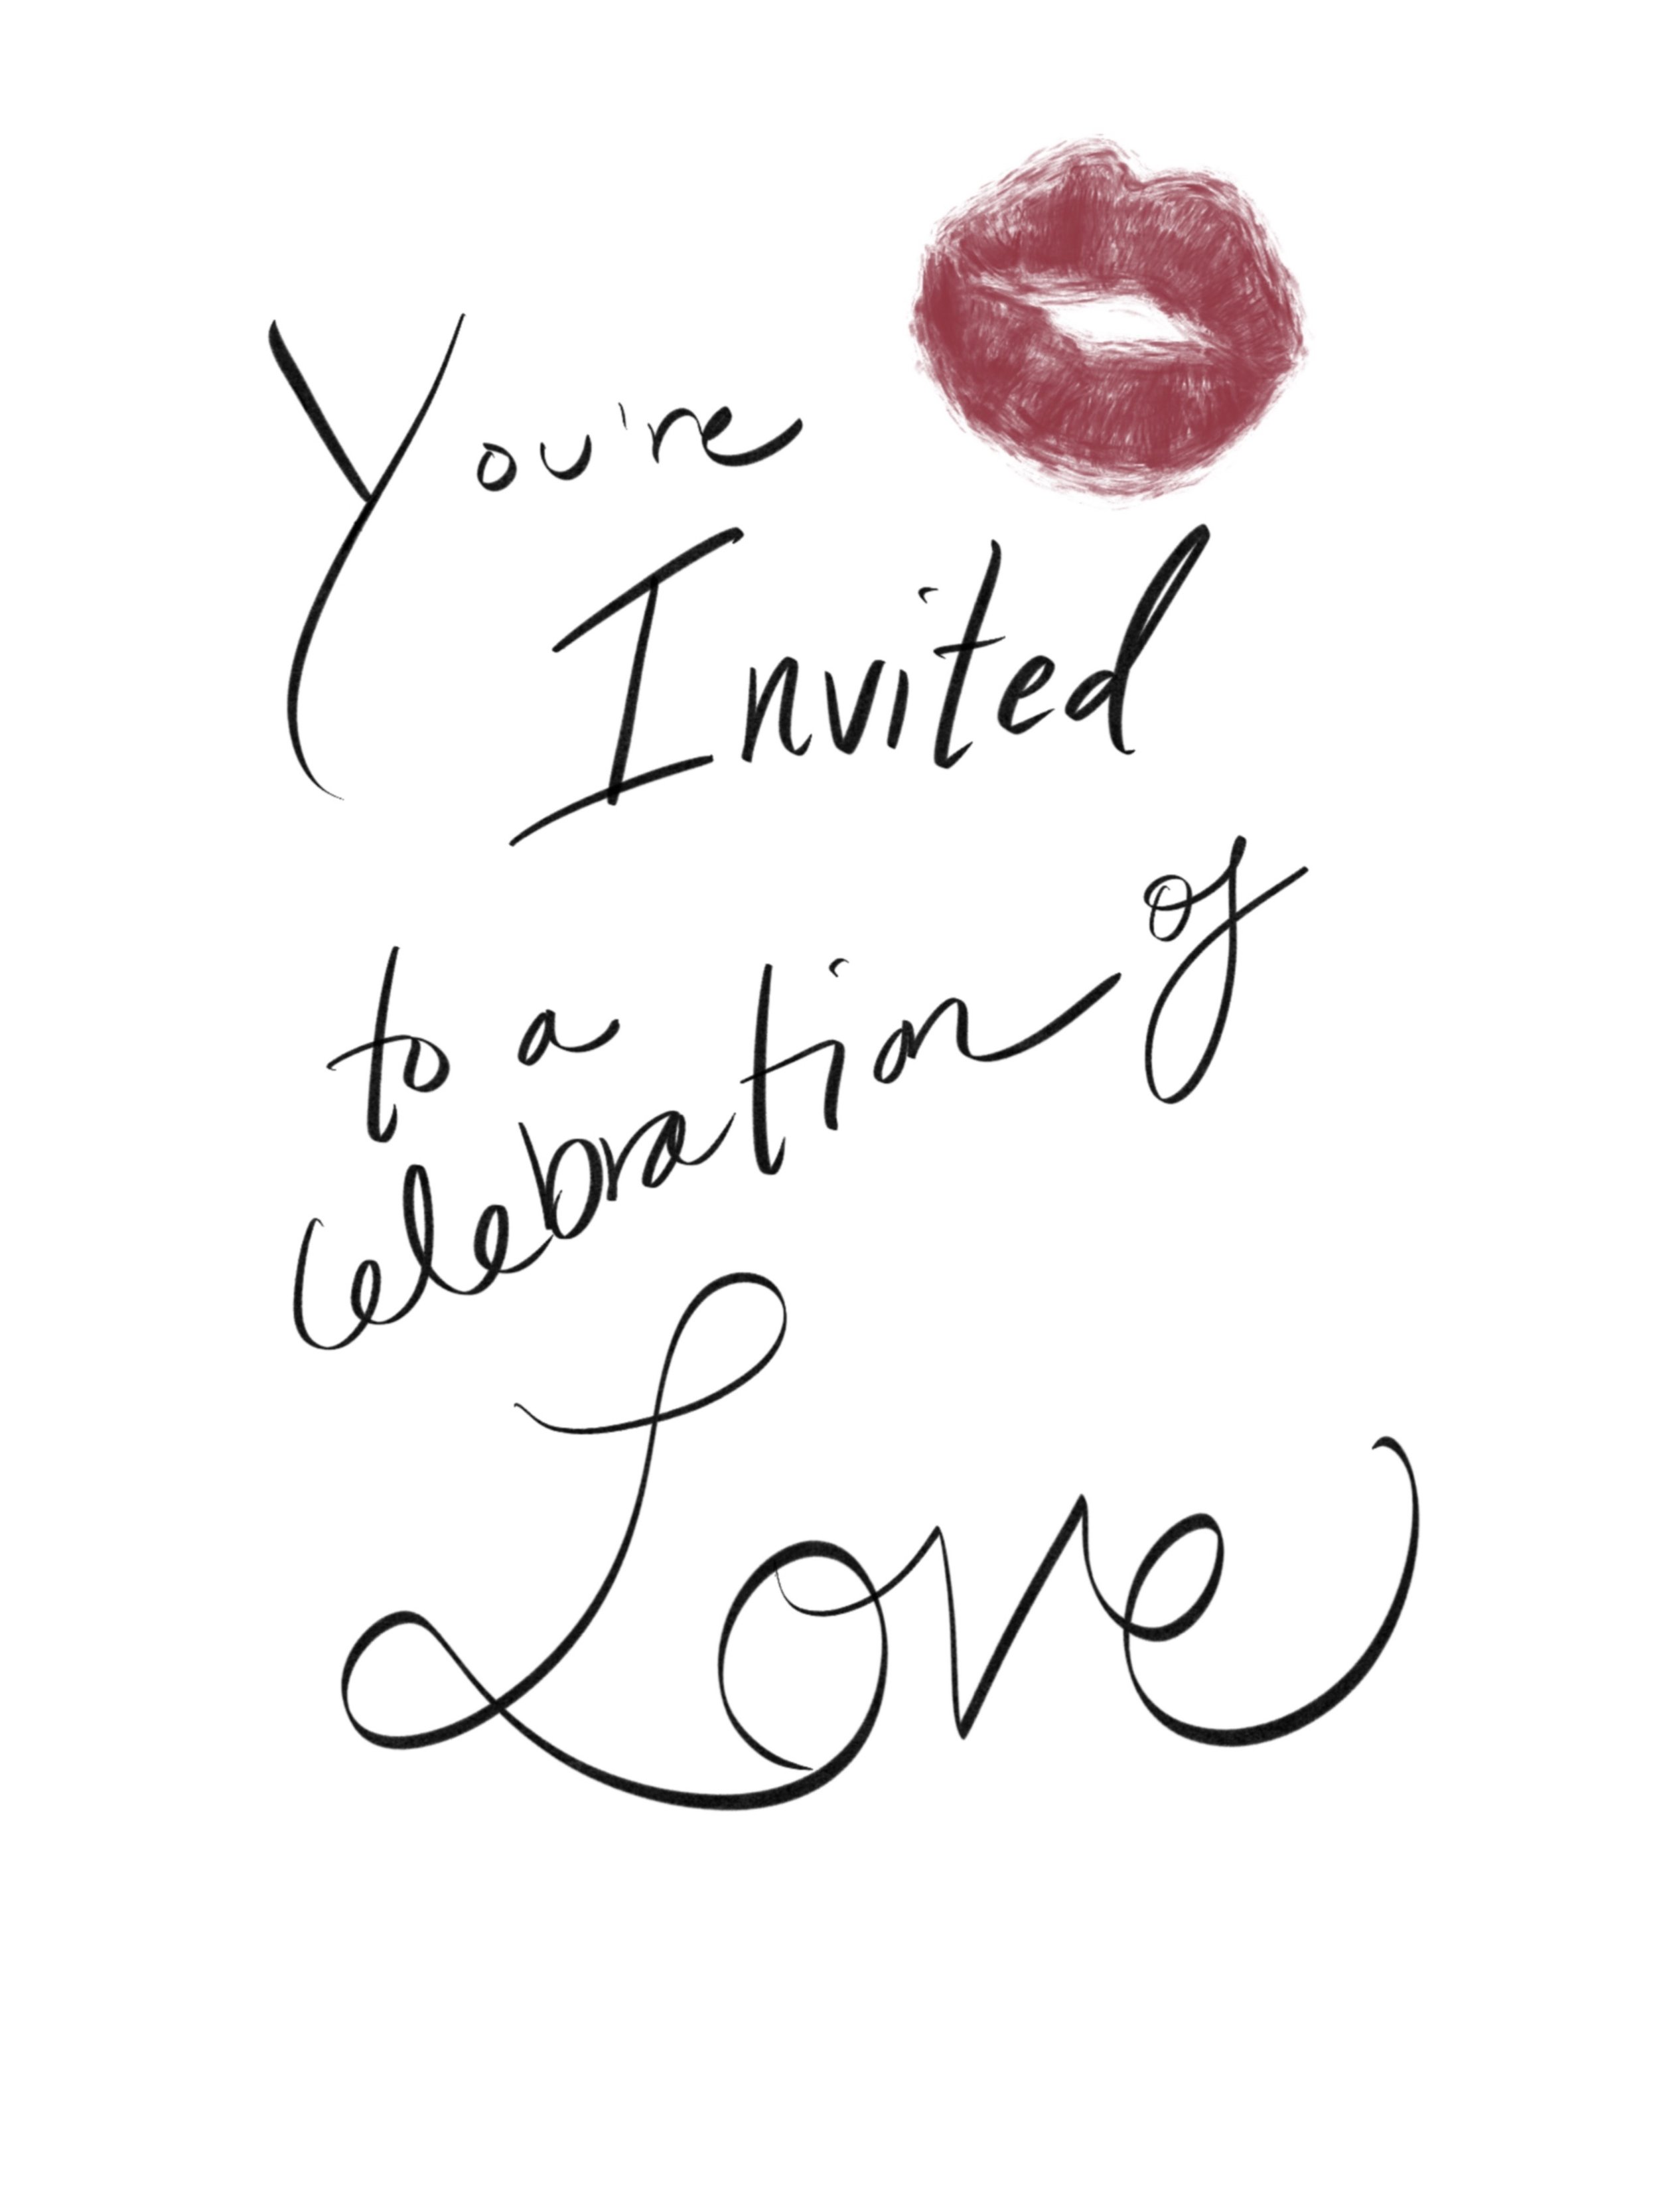 You're
Invited
to a
celebration of
Love